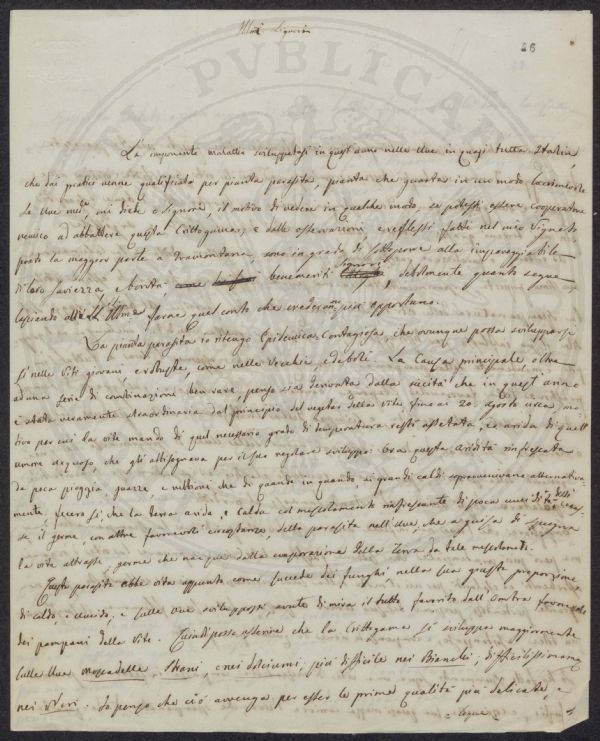 Illmi Signori
46
La imponente malattia sviluppatasi in quest'anno nelle Uve in quasi tutta Italia,
che dai pratici venne qualificata per pianta parasita, pianta che guasta in un modo
le Uve med.e, mi diede o Signori, il motivo di vedere in qualche modo, se potessi essere cooperatore
ad abbattere questa Crittogama, e dalle osservazioni e riflessi fatte nel mio Vigneto
posto la maggior parte a tramontana, sono in grado di sottoporre alla impareggiabile
di loro saviezza, e bontà benemeriti Signori, debolmente quanto segue
lasciando alle LL. Illme farne quel conto che crederanno più opportuno.
La pianta parasita io ritengo Epidemica, Contagiosa, che ovunque possa svilupparsi
si nelle Viti giovani, e robuste, come nelle vecchie, e deboli. La Causa principale, oltre
ad una serie di combinazione ben rare, penso sia derivata dalla siccità che in quest'anno
è stata veramente straordinaria dal principio del vegetar della vite fino ai 20. agosto circa, mo-
tivo per cui la vite mancò di quel necessario grado di temperatura restò assetata, ed arida di quell'
umore acquoso, che gli abbisognava per il suo regolare sviluppo: Ora questa aridità rinfrescata
da poca pioggia, guazze, e nebbioni che di quando in quando, ai grandi caldi sopravenivano alternativa
mente, fecero si, che la terra arida, e calda col mescolamento rinfrescante di poca umidità
se, il germe, con altre favorevoli circostanze, della parasita nell'uva, che a guisa di spugna
la vite attrasse, germe che nacque dalla evaporazione della Terra da tale mescolanza.
Questa parasita ebbe vita appunto come succede dei funghi nella sua giusta proporzione,
di caldo e umido, e sulle Uve svilupposi avuto di mira il tutto favorito dall'ombra
dei pampani della Vite. Quindi posso asserire che la Crittogama si sviluppa maggiormente
sulle Uve moscadelle, e nei dolciumi, più difficile nei Bianchi, difficilissimamente
nei Neri: Io penso che ciò avvenga per esser le prime qualità più delicate, e